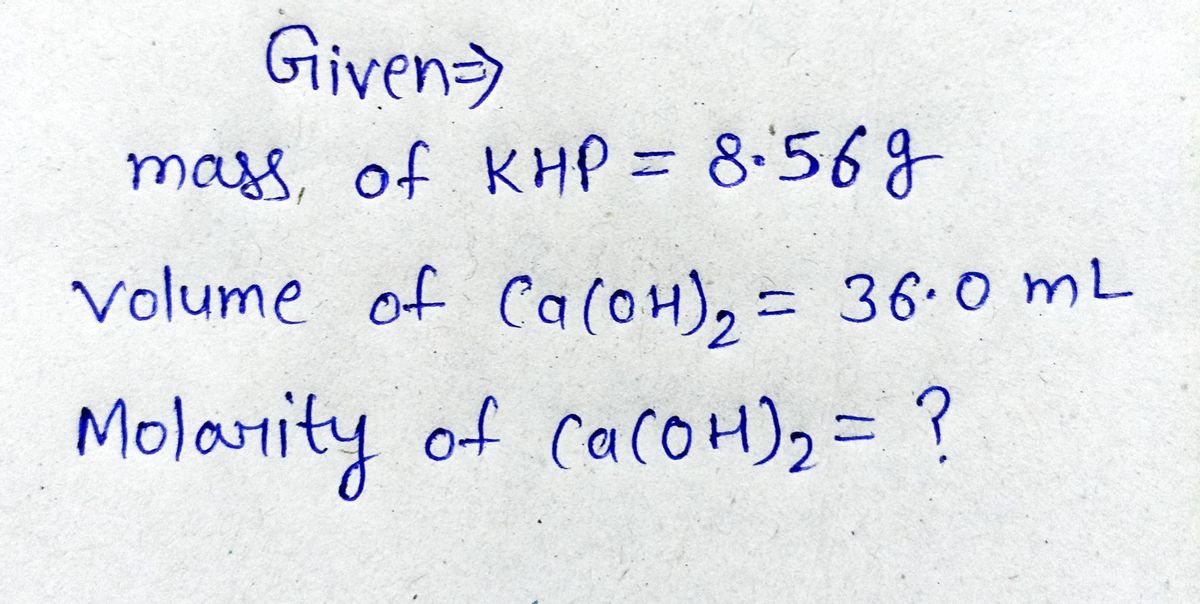 Given⇒
mass, of KHP = 8.56g
volume of Ca(OH)₂ = 36.0 mL
Molarity of Ca(OH)₂ = ?